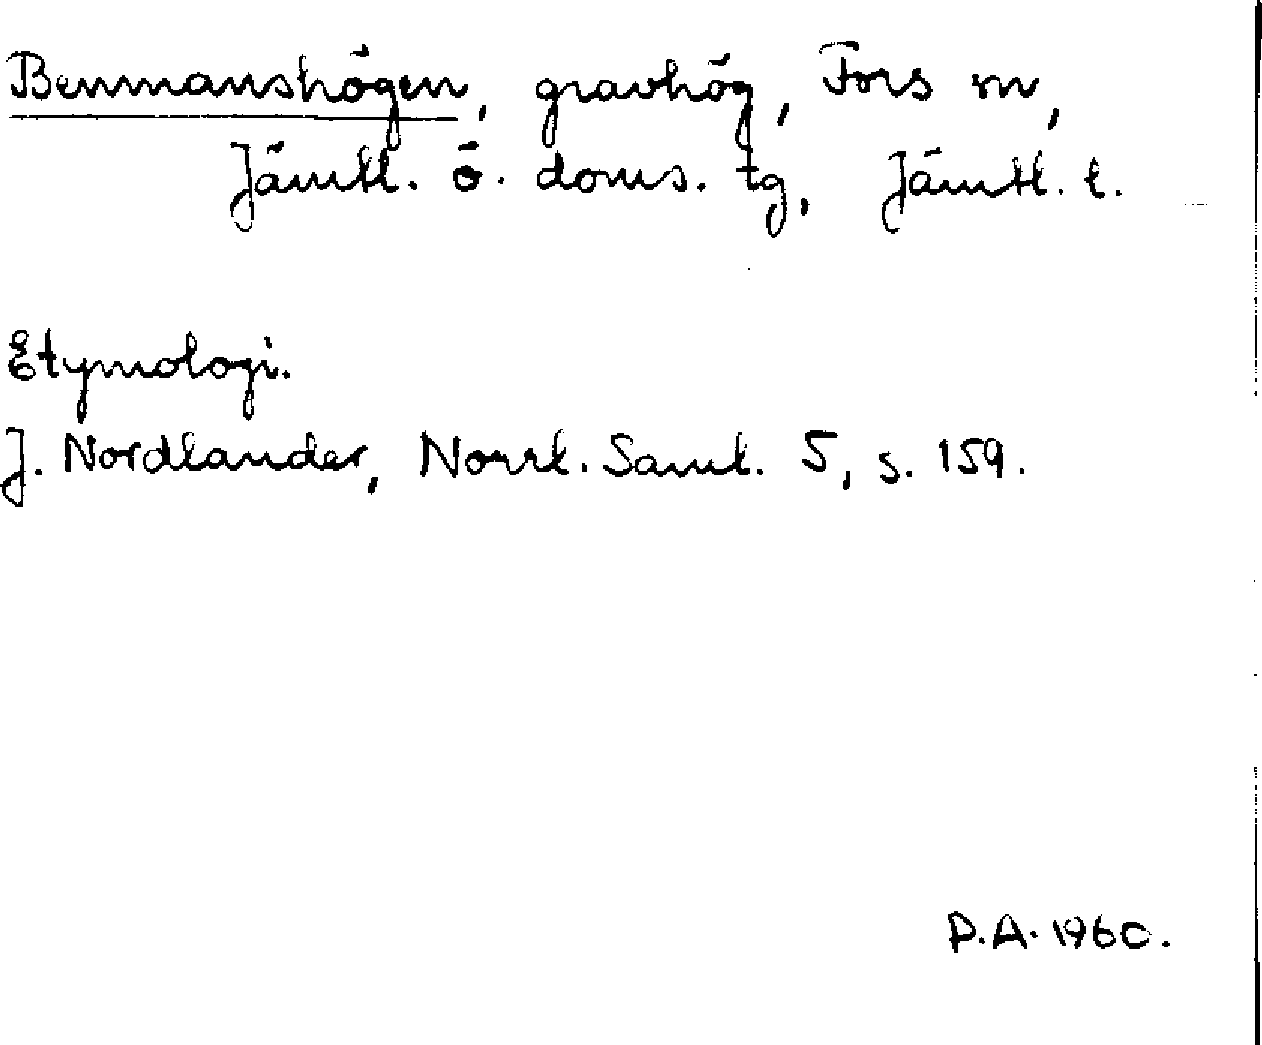 Benmanshögen, gravhög, Fors sn,
Jämtl. ö. doms. tg, Jämtl. l.
Etymologi.
J. Nordlander, Norrl. Saml. 5, s. 159.
P.A. 1960.